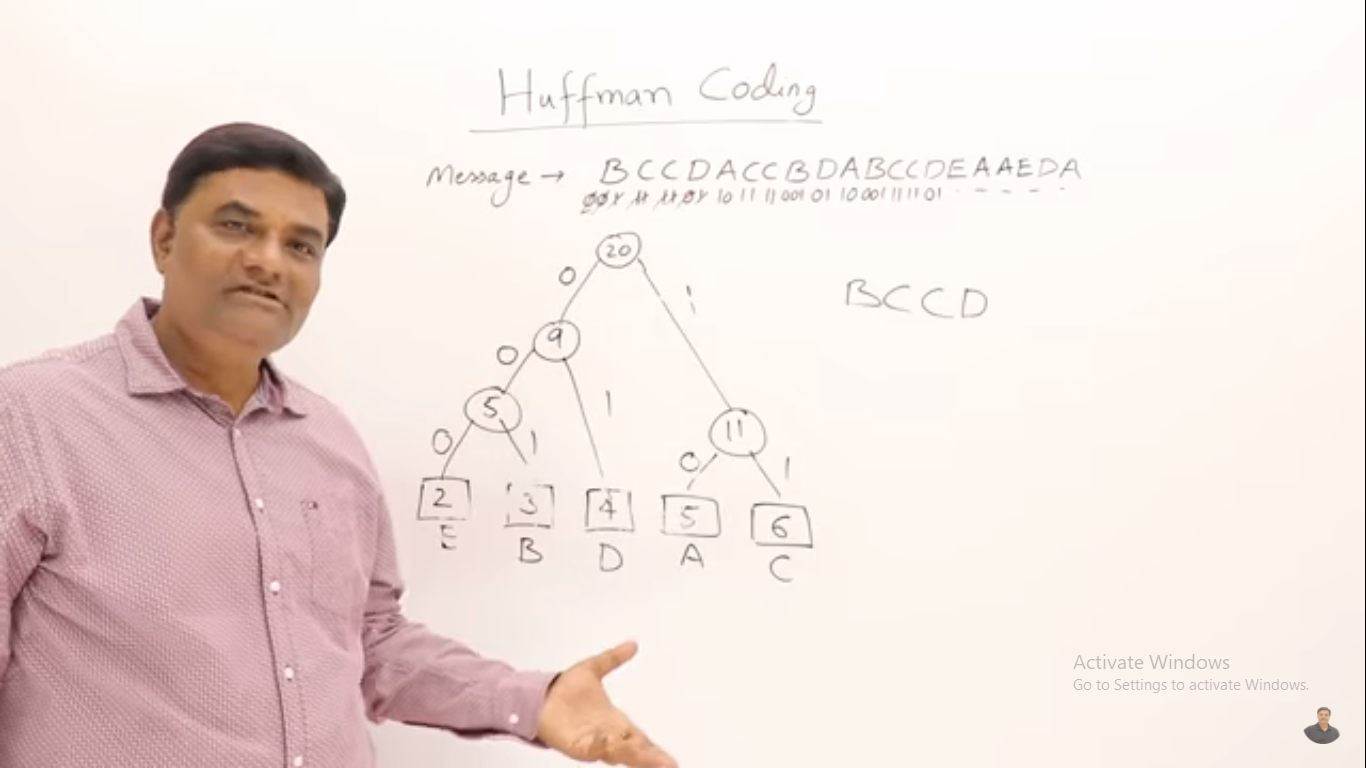 Huffman Coding
Message → BCCDACCBDABCCDEAAEDA
001 11 11 01 10 11 11 001 01 10 001 11 11 01
20
0 1
BCCD
9
0 1
5
11
0 1 0 1
2 3 4 5 6
E B D A C
Activate Windows
Go to Settings to activate Windows.